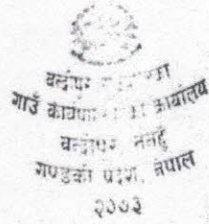 बन्दीपुर
गाउँ कार्यपालिकाको कार्यालय
बन्दीपुर, तनहुँ
गण्डकी प्रदेश, नेपाल
२०७३